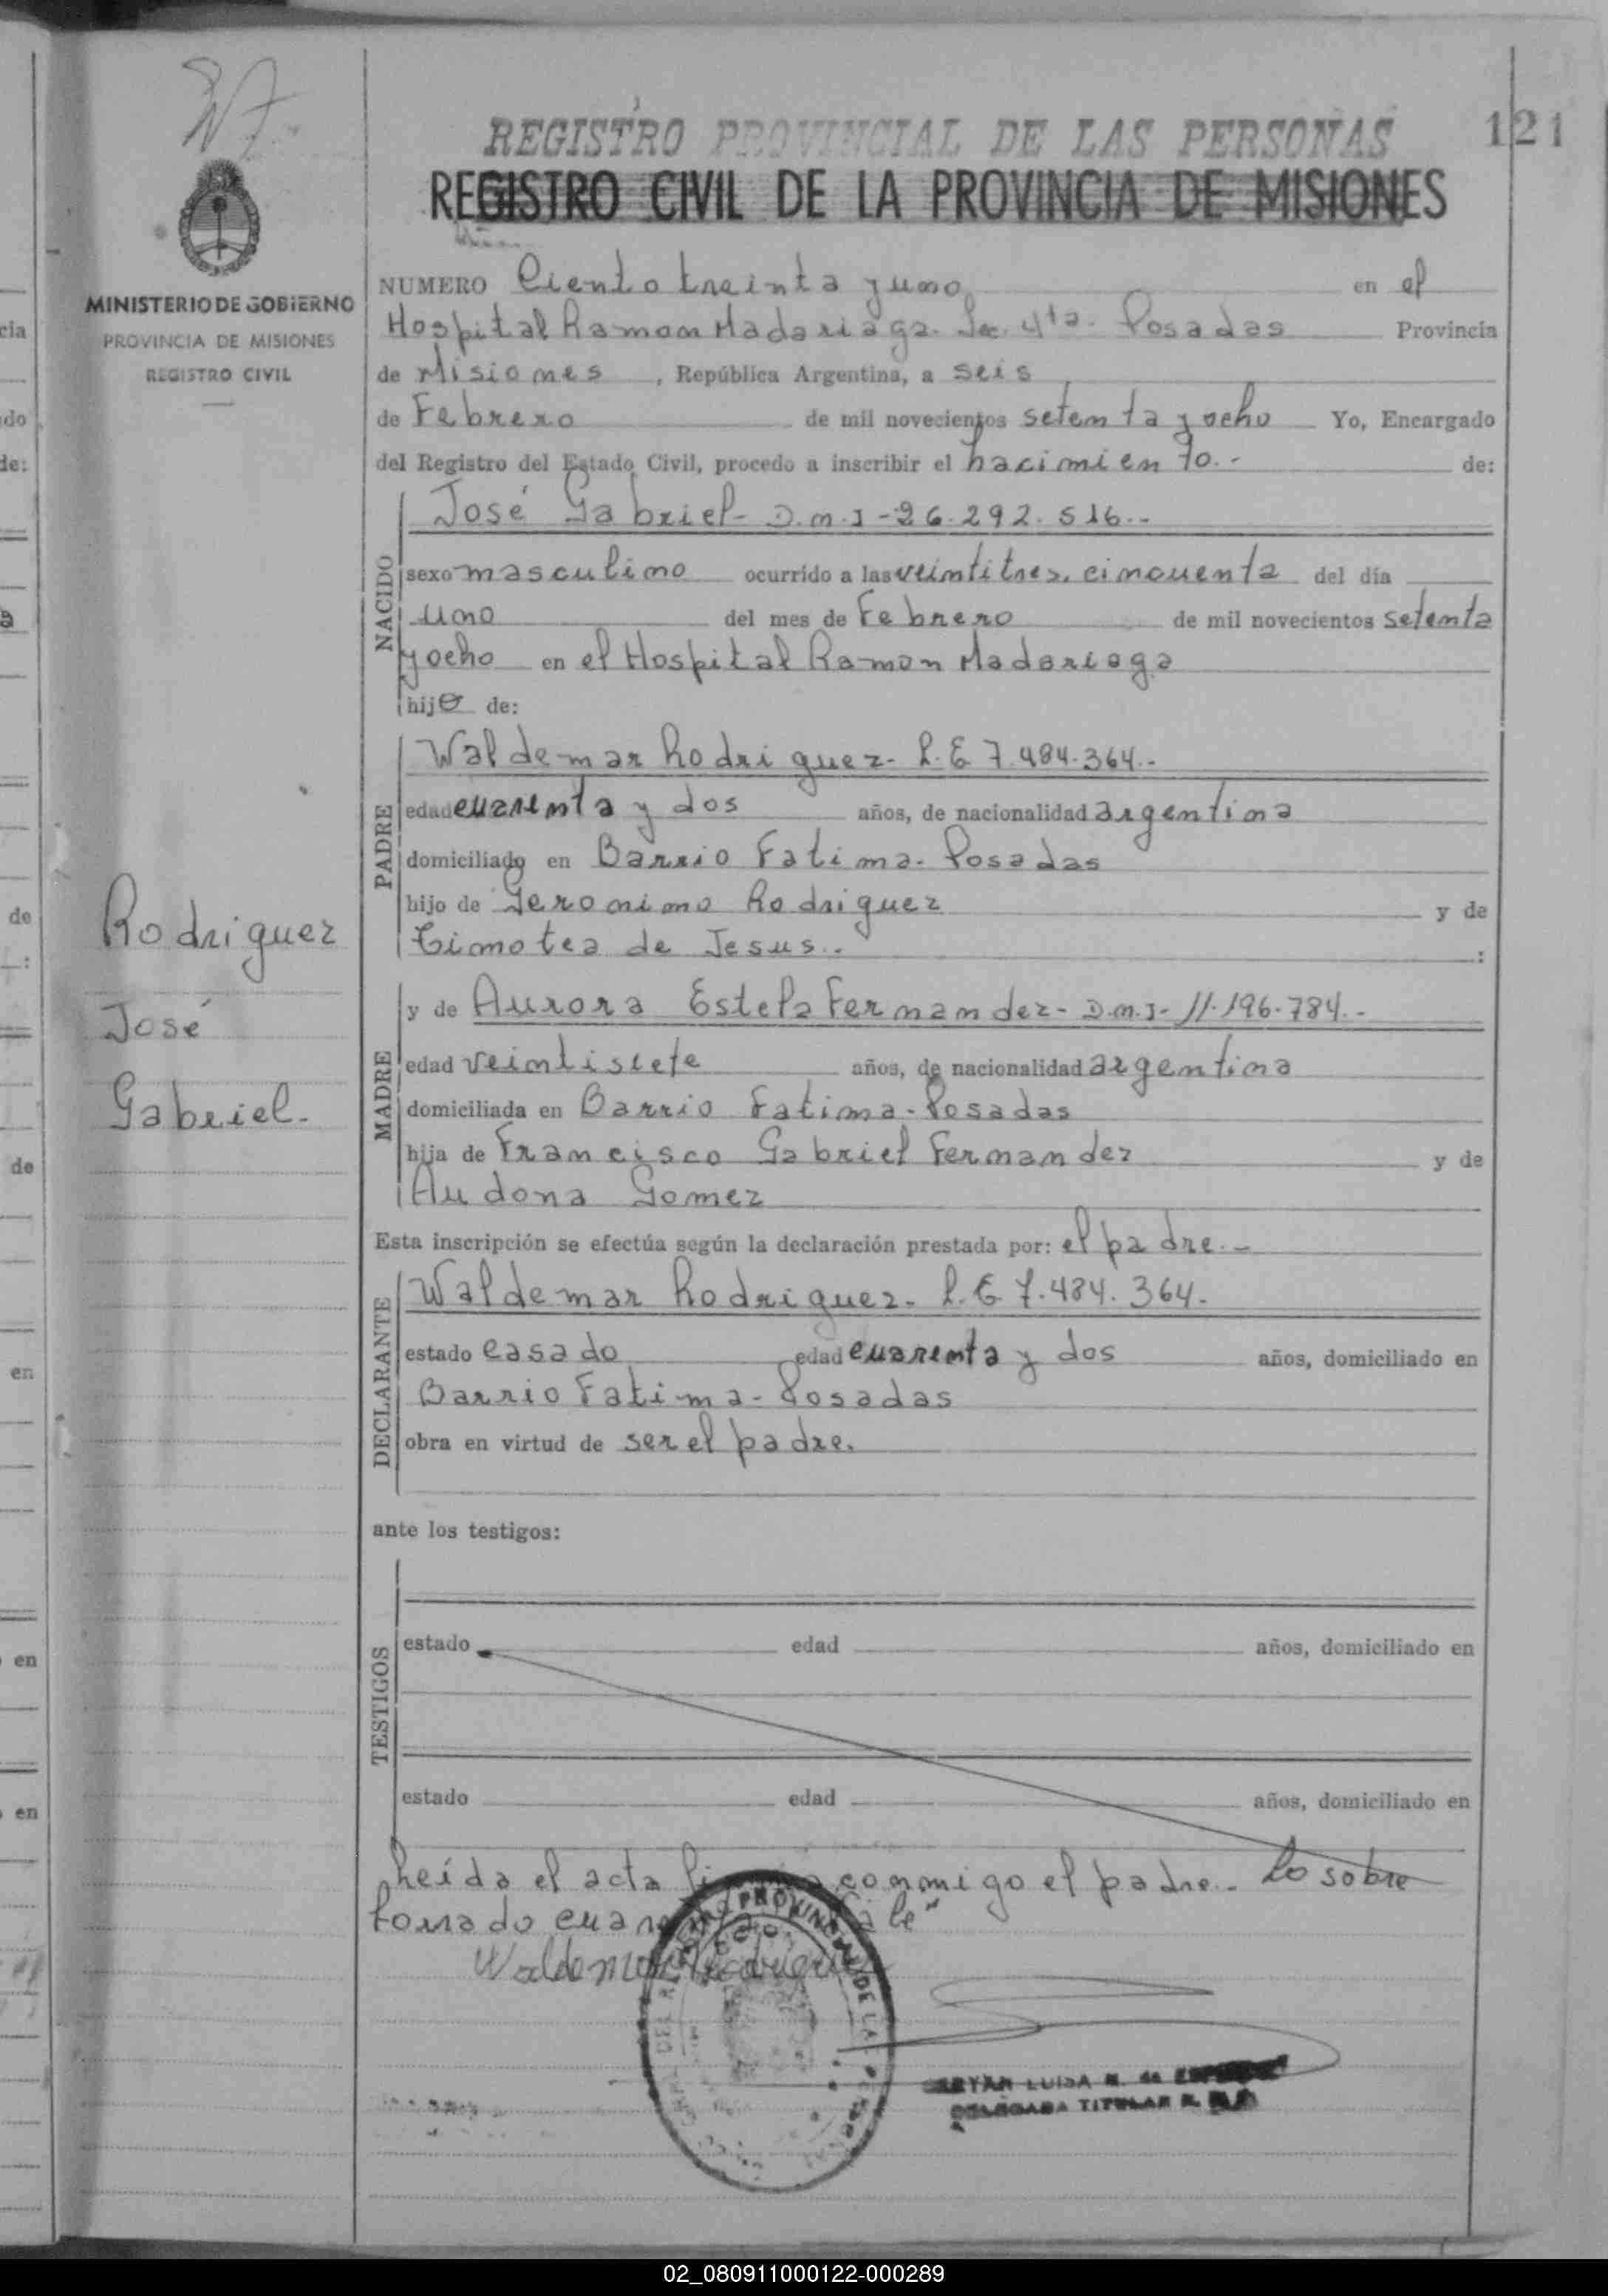 121
REGISTRO PROVINCIAL DE LAS PERSONAS
REGISTRO CIVIL DE LA PROVINCIA DE MISIONES
MINISTERIO DE GOBIERNO
PROVINCIA DE MISIONES
REGISTRO CIVIL
NUMERO Ciento treinta y uno en el
Hospital Ramon Madariaga. Sec. 4ta. Posadas Provincia
de Misiones, República Argentina, a seis
de Febrero de mil novecientos setenta y ocho Yo, Encargado
del Registro del Estado Civil, procedo a inscribir el nacimiento.- de:
NACIDO
José Gabriel- D.n.I-26.292.516.-
sexo masculino ocurrido a las veintitres, cincuenta del día
uno del mes de Febrero de mil novecientos setenta
y ocho en el Hospital Ramon Madariaga
hijo de:
PADRE
Waldemar Rodriguez- L.E 7.484.364.-
edad cuarenta y dos años, de nacionalidad argentina
domiciliado en Barrio Fatima-Posadas
hijo de Geronimo Rodriguez y de
Timotea de Jesus.- :
Rodriguez
José
Gabriel-
MADRE
y de Aurora Estela Fernandez- D.n.I- 11.196.784.-
edad veintisiete años, de nacionalidad argentina
domiciliada en Barrio Fatima-Posadas
hija de Francisco Gabriel Fernandez y de
Audona Gomez
Esta inscripción se efectúa según la declaración prestada por: el padre.-
DECLARANTE
Waldemar Rodriguez- L.E 7.484.364.
estado casado edad cuarenta y dos años, domiciliado en
Barrio Fatima-Posadas
obra en virtud de ser el padre.
ante los testigos:
TESTIGOS
estado edad años, domiciliado en
estado edad años, domiciliado en
Leída el acta conmigo el padre.- Lo sobre
Waldemar Rodriguez
LUISA
DELEGADA TITULAR
02_080911000122-000289